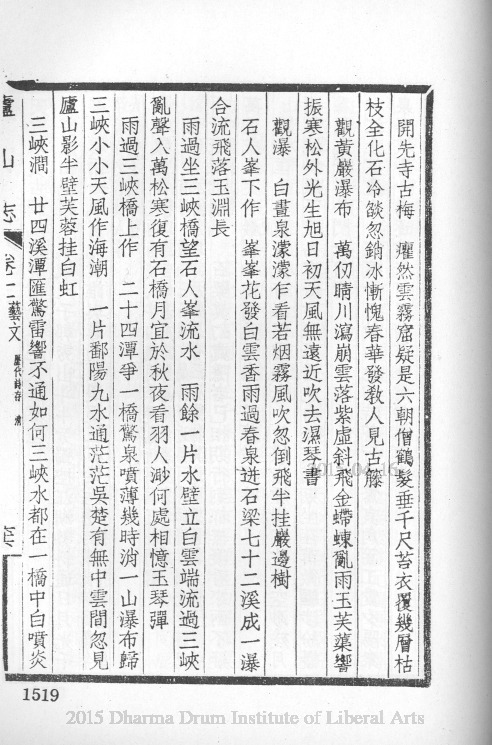 開先寺古梅　癯然雲霧窟疑是六朝僧鶴髮垂千尺苔衣覆幾層枯
枝全化石冷燄忽銷冰慚愧春華發敎人見古籐
觀黃巖瀑布　萬仞晴川瀉崩雲落紫虛斜飛金螮蝀亂雨玉芙蕖響
振寒松外光生旭日初天風無遠近吹去濕琴書
觀瀑　白晝泉濛濛乍看若烟霧風吹忽倒飛半挂巖邊樹
石人峯下作　峯峯花發白雲香雨過春泉迸石梁七十二溪成一瀑
合流飛落玉淵長
雨過坐三峽橋望石人峯流水　雨餘一片水壁立白雲端流過三峽
亂聲入萬松寒復有石橋月宜於秋夜看羽人渺何處相憶玉琴彈
雨過三峽橋上作　二十四潭爭一橋驚泉噴薄幾時消一山瀑布歸
三峽小小天風作海潮　一片鄱陽九水通茫茫吳楚有無中雲間忽見
廬山影半壁芙蓉挂白虹
三峽澗　廿四溪潭匯驚雷響不通如何三峽水都在一橋中白噴炎
廬山志　卷二　藝文　歷代詩存
1519
2015 Dharma Drum Institute of Liberal Arts